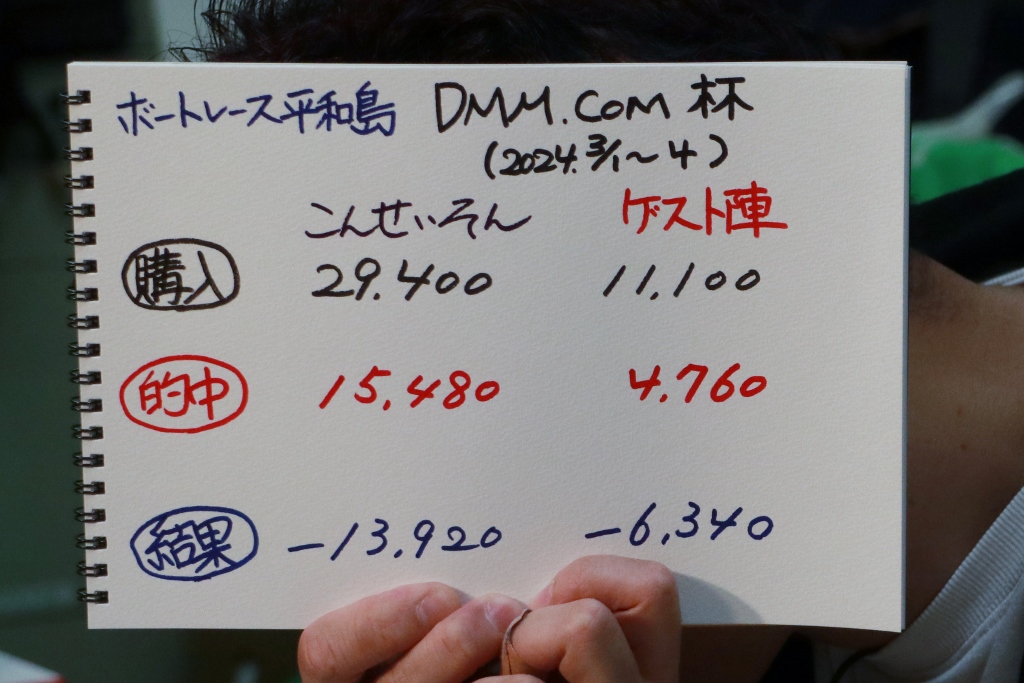 ボートレース平和島 DMM.COM 杯
(2024.3/1~4)
こんせいそん ゲスト陣
購入 29.400 11.100
的中 15.480 4.760
結果 -13.920 -6.340